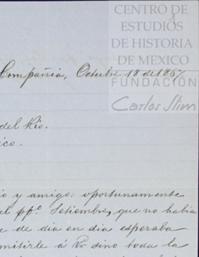 CENTRO DE
ESTUDIOS
DE HISTORIA
DE MEXICO
FUNDACIÓN
Carlos Slim
Compañia, Octubre 18 de 1867
del Rio.
ico.
io y amigo: oportunamente
el pp.º Setiembre, que no habia
e de dia en dia esperaba
mitirle á V. sino toda la